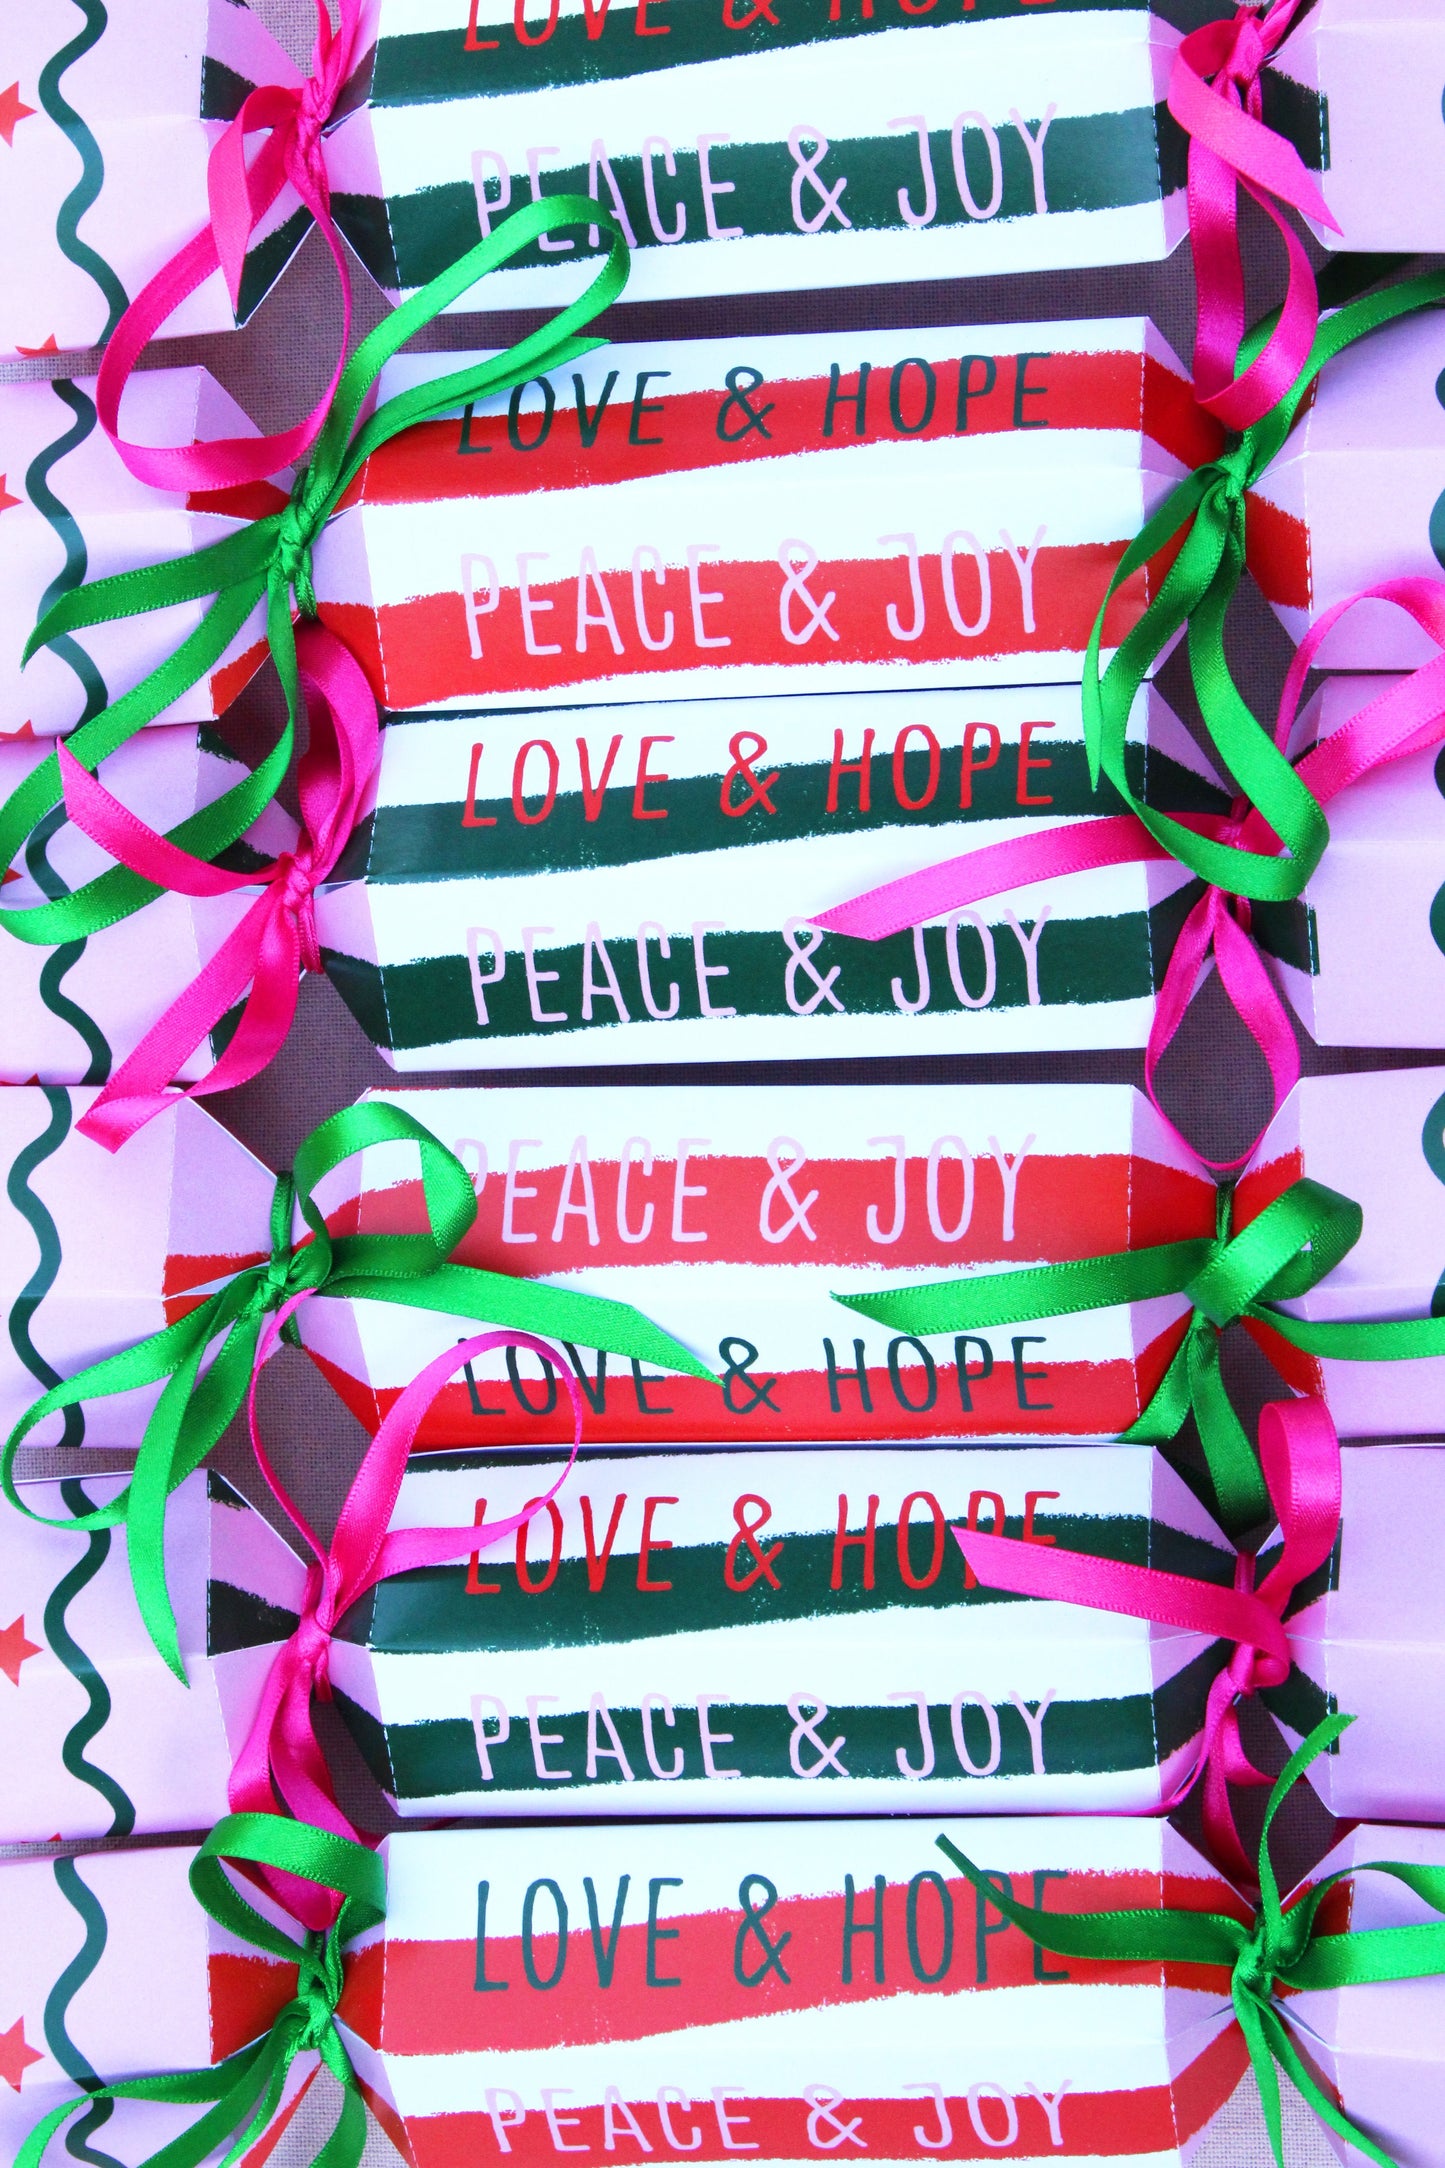 LOVE & HOPE
PEACE & JOY
LOVE & HOPE
PEACE & JOY
LOVE & HOPE
PEACE & JOY
PEACE & JOY
LOVE & HOPE
LOVE & HOPE
PEACE & JOY
LOVE & HOPE
PEACE & JOY